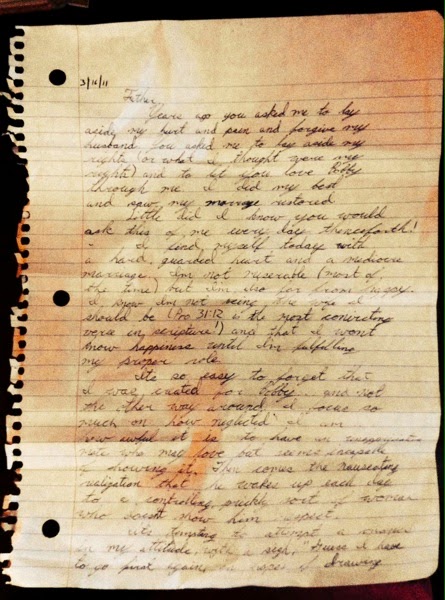 3/16/11
Father,
Years ago you asked me to lay
aside my hurt and pain and forgive my
husband. You asked me to lay aside my
rights (or what I thought were my
rights) and to let you love Bobby
through me. I did my best
and saw my marriage restored.
Little did I know you would
ask this of me every day thenceforth!
I find myself today with
a hard, guarded heart and a mediocre
marriage. I'm not miserable (most of
the time) but I'm also far from happy.
I know I'm not being the wife I
should be (Pro 31:12 is the most convicting
verse in scripture!) and that I won't
know happiness until I'm fulfilling
my proper role.
Its so easy to forget that
I was created for Bobby and not
the other way around. I focus so
much on how neglected I am
how awful it is to have an
mate who may love but seems incapable
of showing it. Then comes the nauseating
realization that he wakes up each day
to a controlling, prickly sort of woman
who doesn't show him respect.
Its tempting to attempt a change
in my attitude with a sigh, "Guess I have
to go first again in hopes of drawing